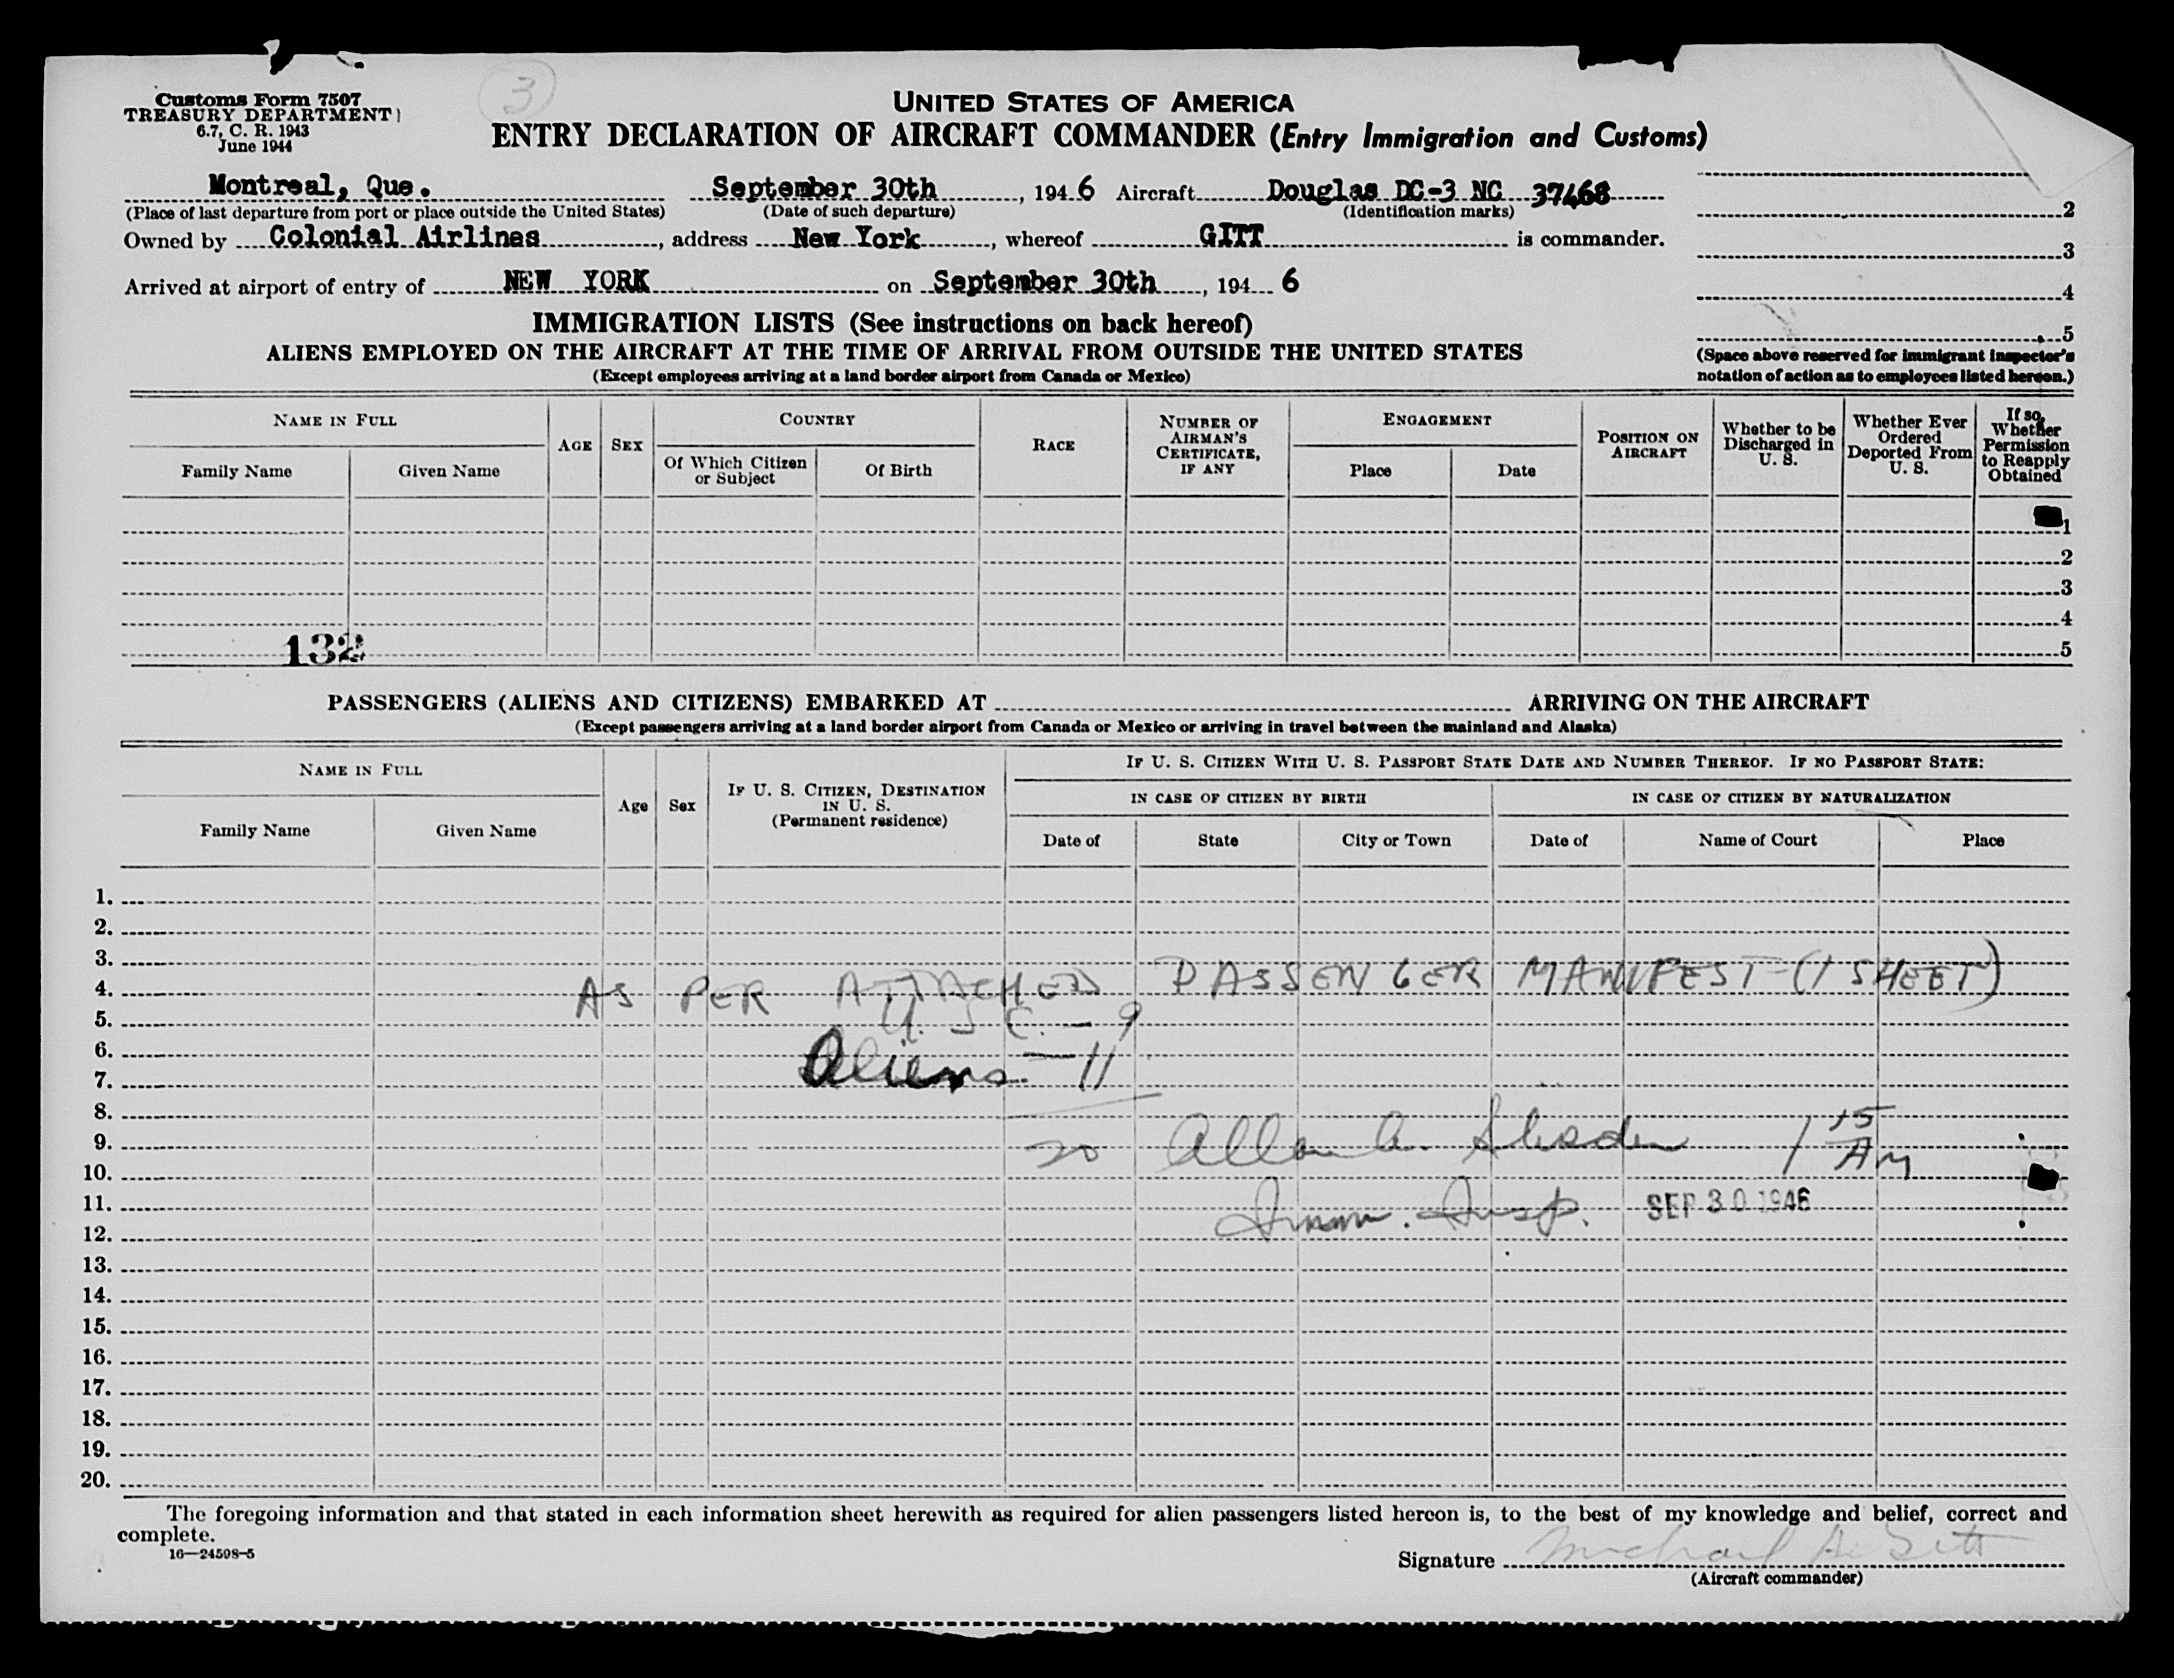 3
Customs Form 7507
TREASURY DEPARTMENT
6.7, C. R. 1943
June 1944
UNITED STATES OF AMERICA
ENTRY DECLARATION OF AIRCRAFT COMMANDER (Entry Immigration and Customs)
Montreal, Que. September 30th, 194 6 Aircraft Douglas DC-3 NC 37468
(Place of last departure from port or place outside the United States) (Date of such departure) (Identification marks)
Owned by Colonial Airlines, address New York, whereof GITT is commander.
Arrived at airport of entry of NEW YORK on September 30th, 194 6
2
3
4
5
(Space above reserved for immigrant inspector's
notation of action as to employees listed hereon.)
IMMIGRATION LISTS (See instructions on back hereof)
ALIENS EMPLOYED ON THE AIRCRAFT AT THE TIME OF ARRIVAL FROM OUTSIDE THE UNITED STATES
(Except employees arriving at a land border airport from Canada or Mexico)
NAME IN FULL
Family Name
Given Name
AGE
SEX
COUNTRY
Of Which Citizen or Subject
Of Birth
RACE
NUMBER OF AIRMAN'S CERTIFICATE, IF ANY
ENGAGEMENT
Place
Date
POSITION ON AIRCRAFT
Whether to be Discharged in U. S.
Whether Ever Ordered Deported From U. S.
If so, Whether Permission to Reapply Obtained
1
2
3
4
5
132
PASSENGERS (ALIENS AND CITIZENS) EMBARKED AT ARRIVING ON THE AIRCRAFT
(Except passengers arriving at a land border airport from Canada or Mexico or arriving in travel between the mainland and Alaska)
NAME IN FULL
Family Name
Given Name
Age
Sex
IF U. S. CITIZEN, DESTINATION IN U. S.
(Permanent residence)
IF U. S. CITIZEN WITH U. S. PASSPORT STATE DATE AND NUMBER THEREOF. IF NO PASSPORT STATE:
IN CASE OF CITIZEN BY BIRTH
IN CASE OF CITIZEN BY NATURALIZATION
Date of
State
City or Town
Date of
Name of Court
Place
1.
2.
3.
4. AS PER ATTACHED PASSENGER MANIFEST-(1 SHEET)
5. U.S.C. - 9
6.
7. Aliens - 11
8.
9. 20 Allan A. 1 15 AM
10.
11. Imm. Insp. SEP 30 1946
12.
13.
14.
15.
16.
17.
18.
19.
20.
The foregoing information and that stated in each information sheet herewith as required for alien passengers listed hereon is, to the best of my knowledge and belief, correct and
complete.
16—24598-5
Signature Michael A. Gitt
(Aircraft commander)